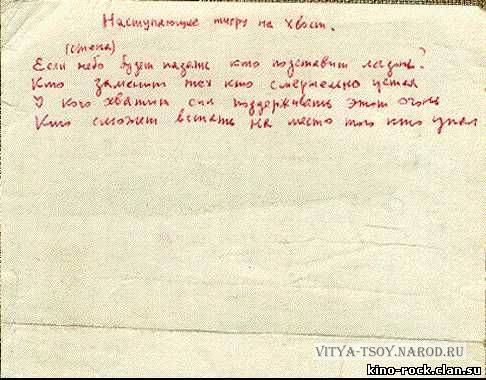 Наступающие тигру на хвост.
(стена)
Если небо будет падать кто подставит ладонь?
Кто заменит тех кто смертельно устал
У кого хватит сил поддерживать этот огонь
Кто сможет встать на место того кто упал
VITYA-TSOY.NAROD.RU
kino-rock.clan.su